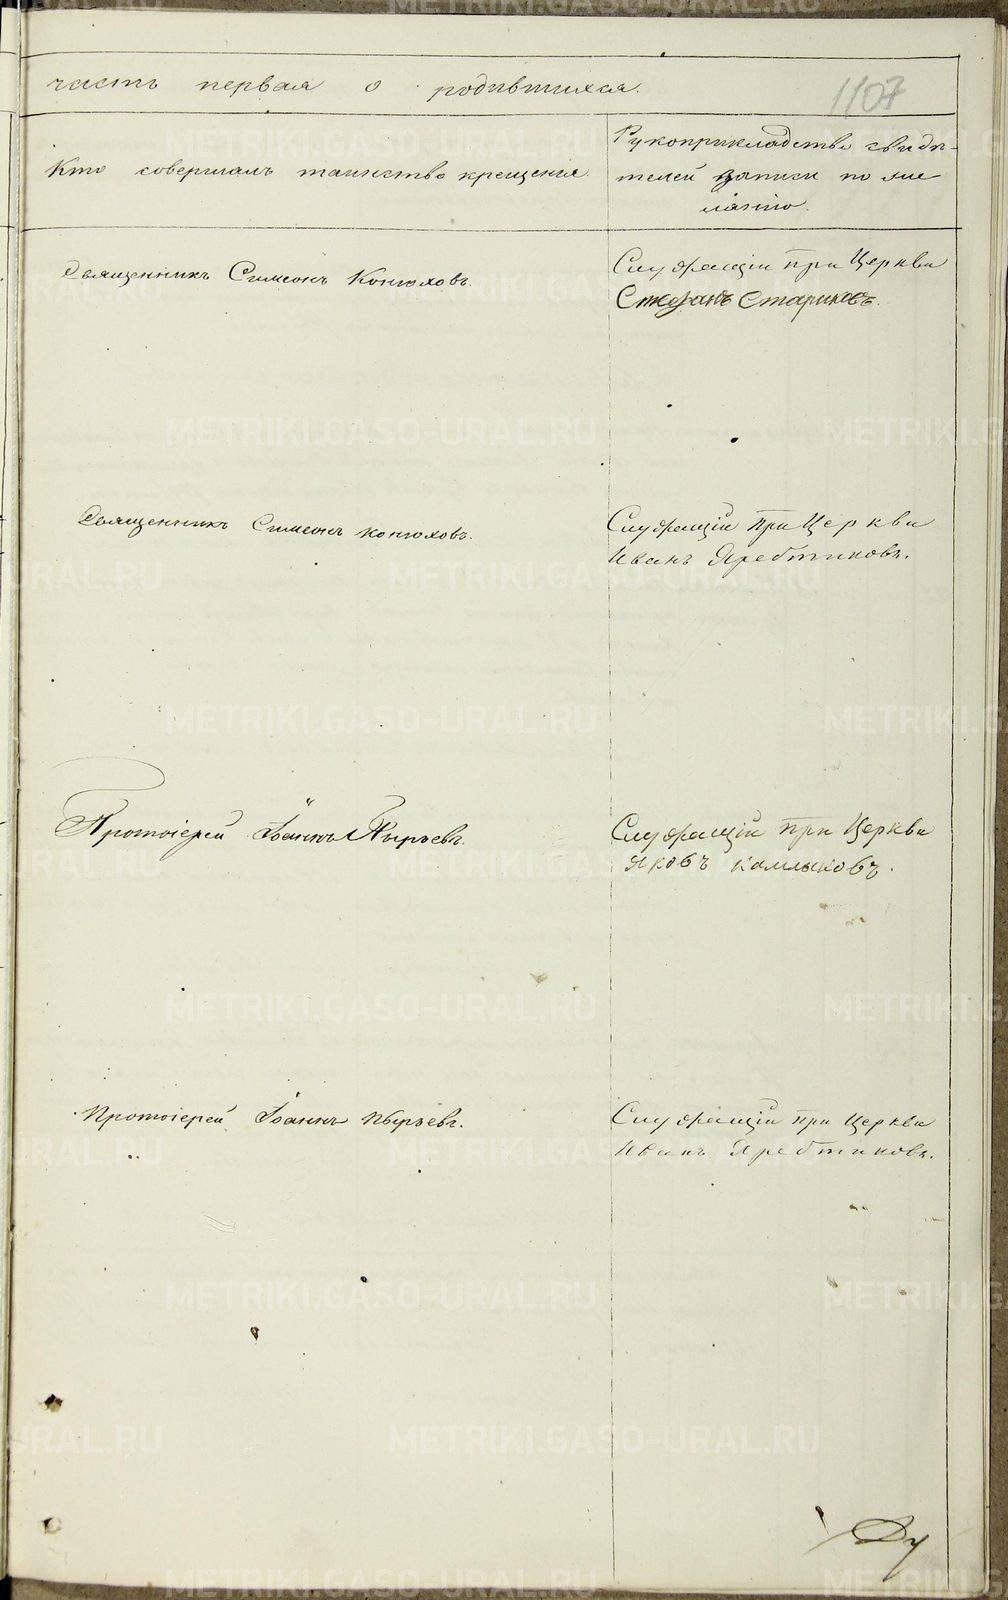 часть первая о родившихся.
1107
Кто совершалъ таинство крещенія
Рукоприкладство свидѣ-
телей записи по же
ланію.
Священникъ Симеонъ Конюховъ.
Служащій при Церкви
Стефанъ Стариковъ.
Священникъ Симеонъ Конюховъ.
Служащій при Церкви
Иванъ Ястребтиковъ.
Протоіерей Іоаннъ Пырьевъ.
Служащій при Церкви
Яковъ Калмыковъ.
Протоіерей Іоаннъ Пырьевъ.
Служащій при Церкви
Иванъ
METRIKI.GASO-URAL.RU